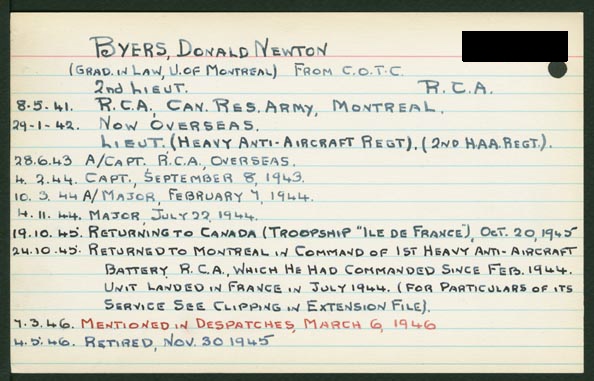 BYERS, DONALD NEWTON
(GRAD. IN LAW, U. OF MONTREAL) FROM C.O.T.C.
2ND LIEUT. R.C.A.
8-5-41. R.C.A., CAN. RES. ARMY, MONTREAL.
29-1-42. NOW OVERSEAS.
LIEUT. (HEAVY ANTI-AIRCRAFT REGT). (2ND H.A.A. REGT.).
28.6.43 A/CAPT. R.C.A., OVERSEAS.
4.2.44. CAPT., SEPTEMBER 8, 1943.
10.3.44 A/MAJOR, FEBRUARY 7, 1944.
4.11.44. MAJOR, JULY 22, 1944.
19.10.45. RETURNING TO CANADA (TROOPSHIP "ILE DE FRANCE"), OCT. 20, 1945
24.10.45. RETURNED TO MONTREAL IN COMMAND OF 1ST HEAVY ANTI-AIRCRAFT
BATTERY R.C.A., WHICH HE HAD COMMANDED SINCE FEB. 1944.
UNIT LANDED IN FRANCE IN JULY 1944. (FOR PARTICULARS OF ITS
SERVICE SEE CLIPPING IN EXTENSION FILE).
7.3.46. MENTIONED IN DESPATCHES, MARCH 6, 1946
4.5.46. RETIRED, NOV. 30 1945